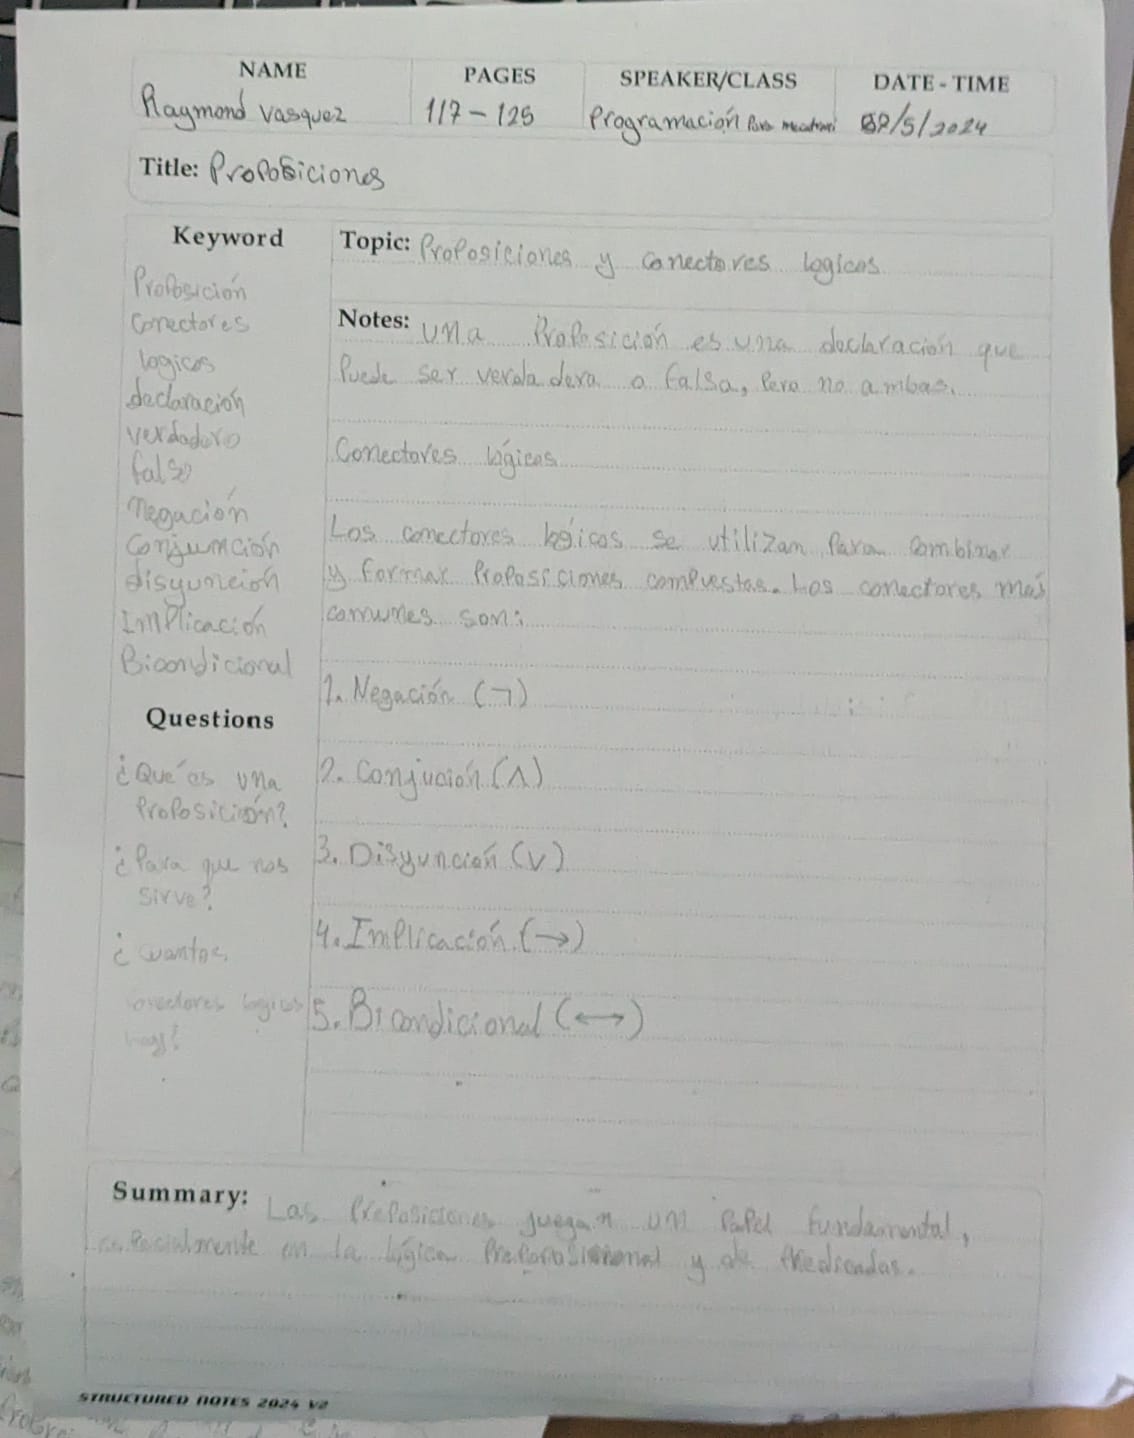 NAME PAGES SPEAKER/CLASS DATE - TIME
Raymond Vasquez 117 - 125 Programación Para /5/2024
Title: Proposiciones
Keyword
Proposición
Conectores
logicos
declaración
verdadero
falso
Negación
Conjumción
disyunción
Implicación
Bicondicional
Questions
¿Qué es una
Proposición?
¿Para que nos
sirve?
¿cuantos
conectores logicos
hay?
Topic: Proposiciones y conectores logicos
Notes: una Proposición es una declaración que
Puede ser verdadera o falsa, Pero no ambas.
Conectores lógicos
Los conectores lógicos se utilizan Para combinar
y formar Proposiciones compuestas. Los conectores más
comunes son:
1. Negación (¬)
2. Conjución (∧)
3. Disyunción (∨)
4. Implicación (→)
5. Bicondicional (↔)
Summary: Las Proposiciones juegan un Papel fundamental,
especialmente en la lógica y de Predicados.
STRUCTURED NOTES 2024 V2